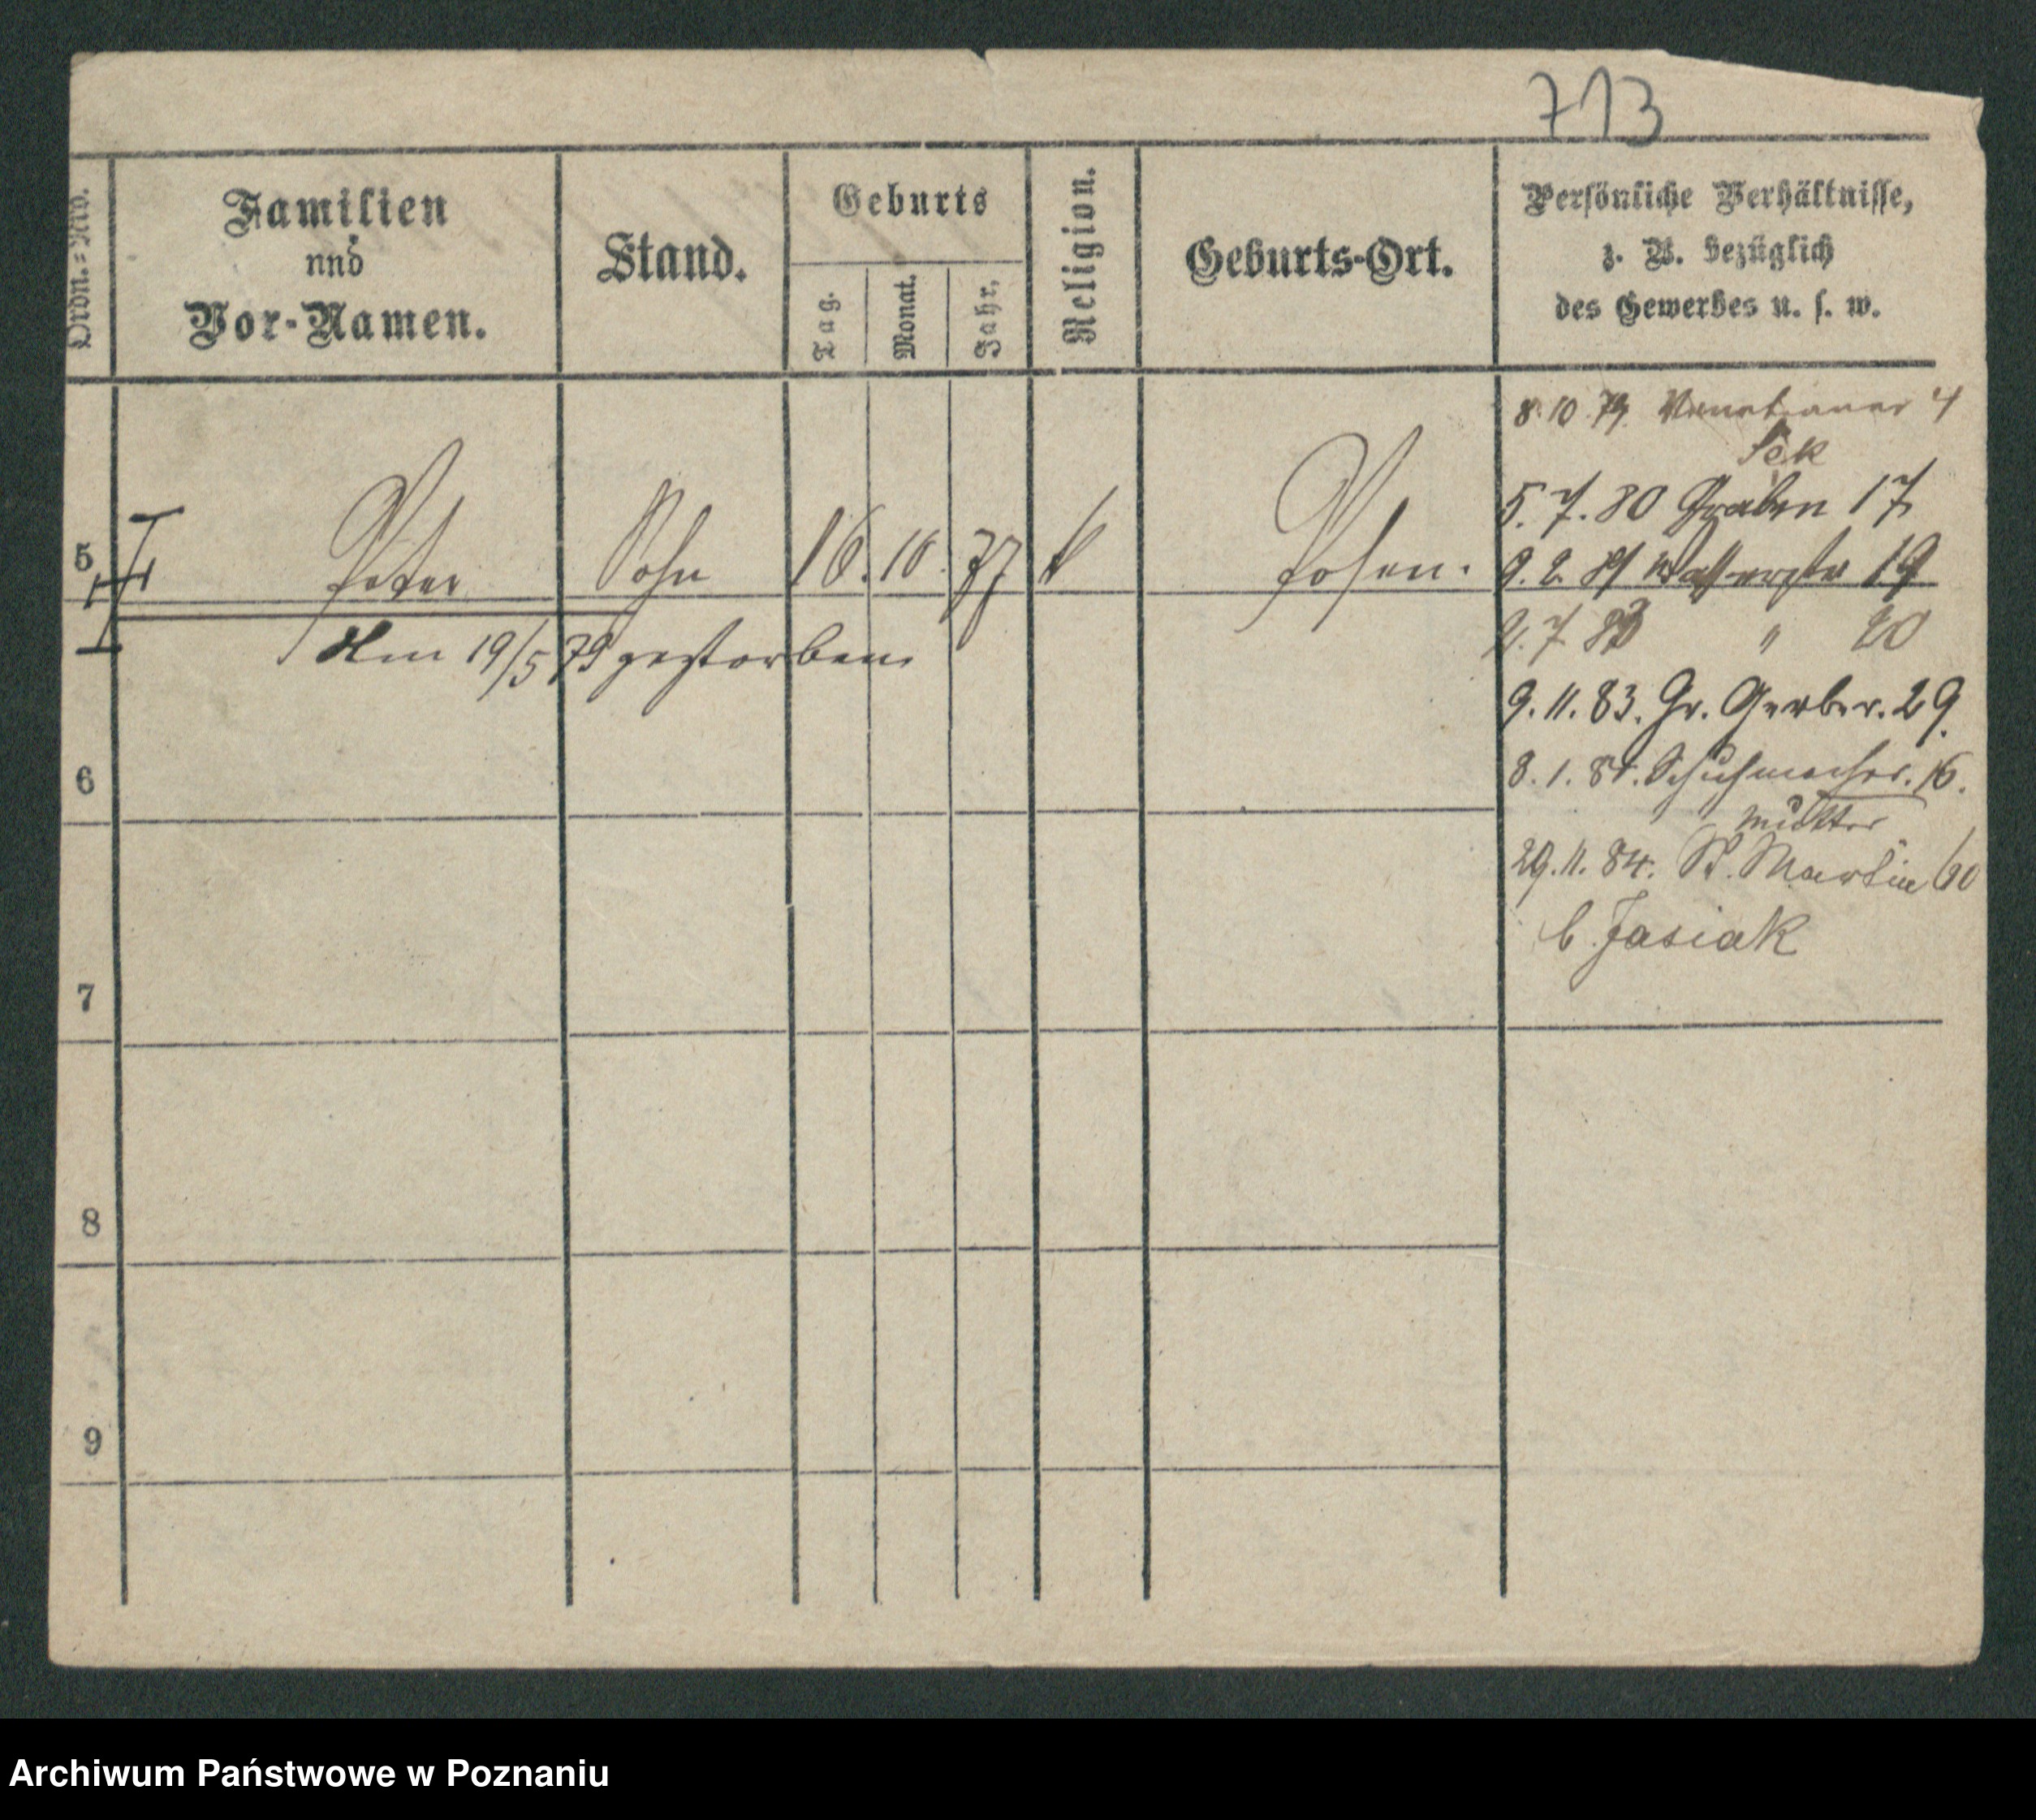 713
Ordn.=No.
Familien
und
Vor-Namen.
Stand.
Geburts
Tag.
Monat.
Jahr.
Religion.
Geburts-Ort.
Persönliche Verhältnisse,
z. B. bezüglich
des Gewerbes u. s. w.
8. 10. 79. Venetianer 4
5. 7. 80 Graben 17
5 Peter Sohn 16. 10. 77 k Posen.
9. 2. 81 Wallischei 19
Am 19/5 79 gestorben
2. 7. 83 " 20
9. 11. 83. Gr. Gerber. 29.
6
8. 1. 84. Schuhmacher. 16.
Mutter
29. 11. 84. St. Martin 60
b. Jasiak
7
8
9
Archiwum Państwowe w Poznaniu